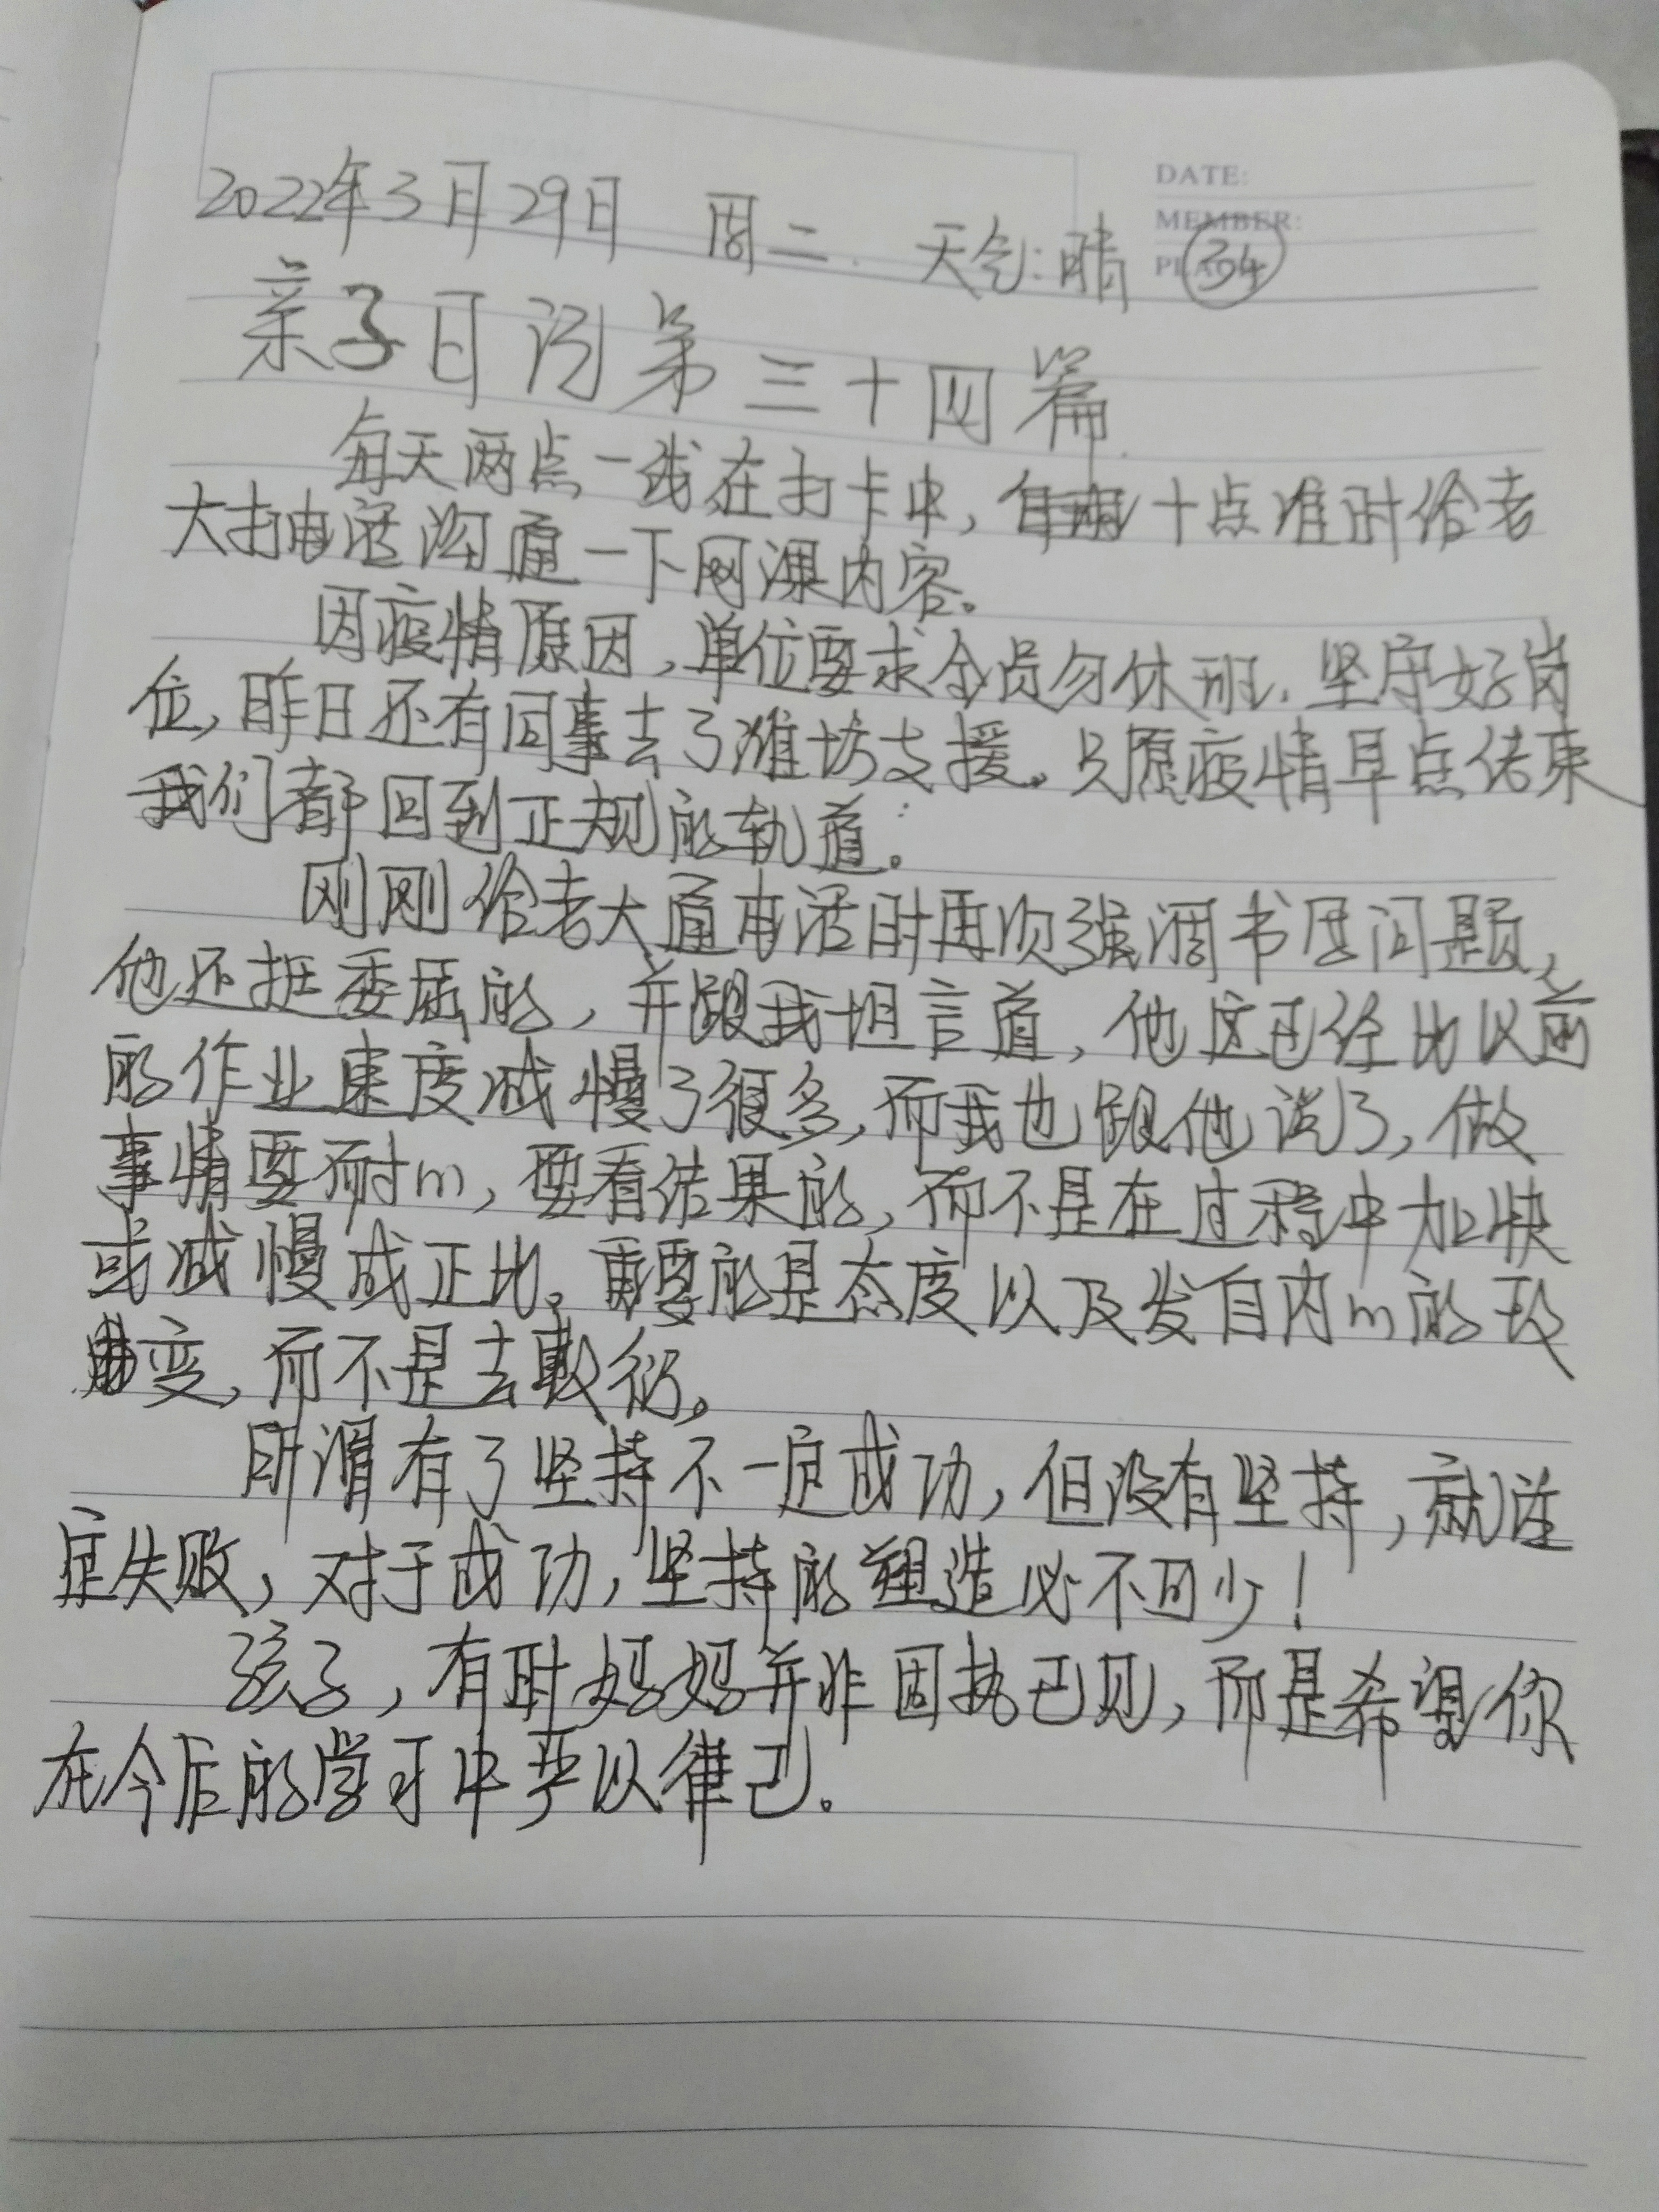 DATE:
MEMBER:
2022年3月29日 周二 天气:晴 34
亲子日记第三十四篇
每天两点一线在打卡中,每晚十点准时给老
大打电话沟通一下网课内容。
因疫情原因,单位要求全员勿休班.坚守好岗
位,昨日还有同事去了潍坊支援。只愿疫情早点结束
我们都回到正规的轨道。
刚刚给老大通电话时再次强调书写问题,
他还挺委屈的,并跟我坦言道,他这已经比以前
的作业速度减慢了很多,而我也跟他说了,做
事情要耐心,要看结果的,而不是在过程中加快
或减慢成正比。重要的是态度以及发自内心的改
变,而不是去敷衍。
所谓有了坚持不一定成功,但没有坚持,就注
定失败,对于成功,坚持的塑造必不可少!
孩子,有时妈妈并非固执已见,而是希望你
在今后的学习中严以律己。